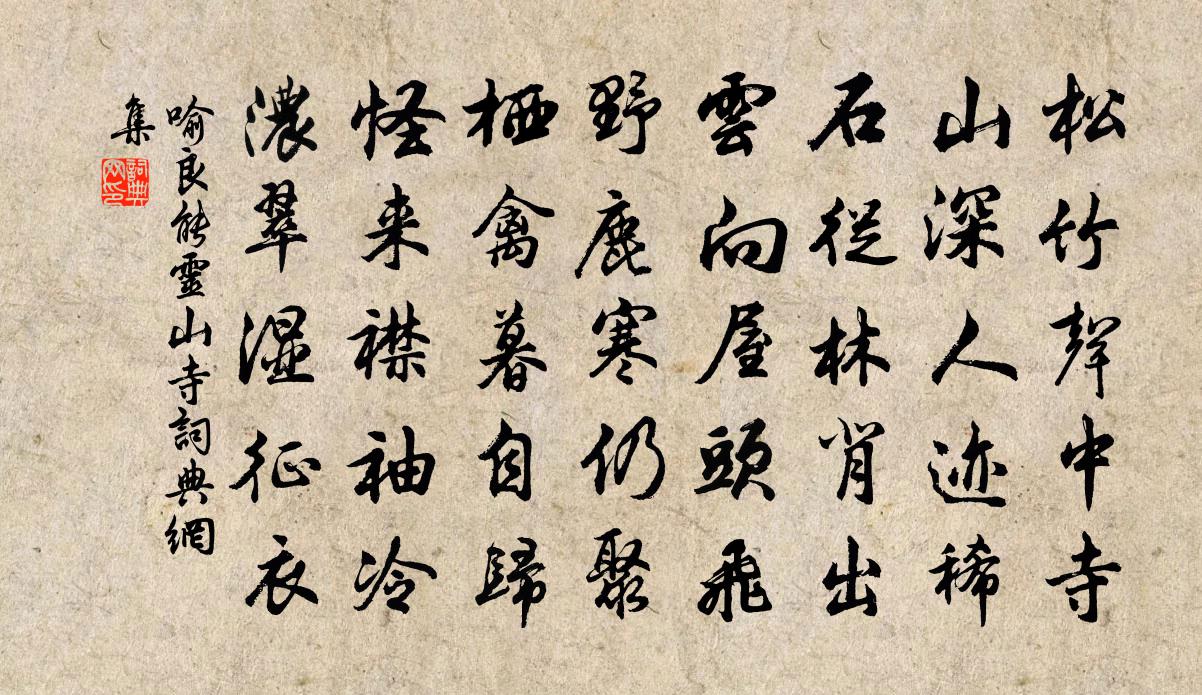 松竹聲中寺
山深人迹稀
石從林肖出
雲向屋頭飛
野鹿寒仍聚
栖禽暮自歸
怪来襟袖冷
濃翠濕征衣
喻良能靈山寺詞典網
集
詞典
网印